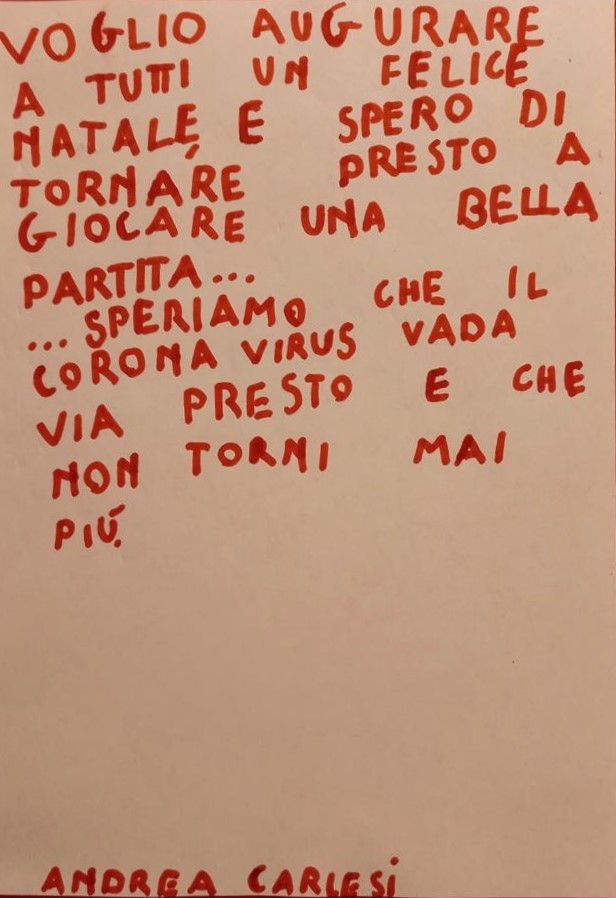 VOGLIO AUGURARE
A TUTTI UN FELICE
NATALE E SPERO DI
TORNARE PRESTO A
GIOCARE UNA BELLA
PARTITA...
...SPERIAMO CHE IL
CORONA VIRUS VADA
VIA PRESTO E CHE
NON TORNI MAI
PIÚ.
ANDREA CARLESi